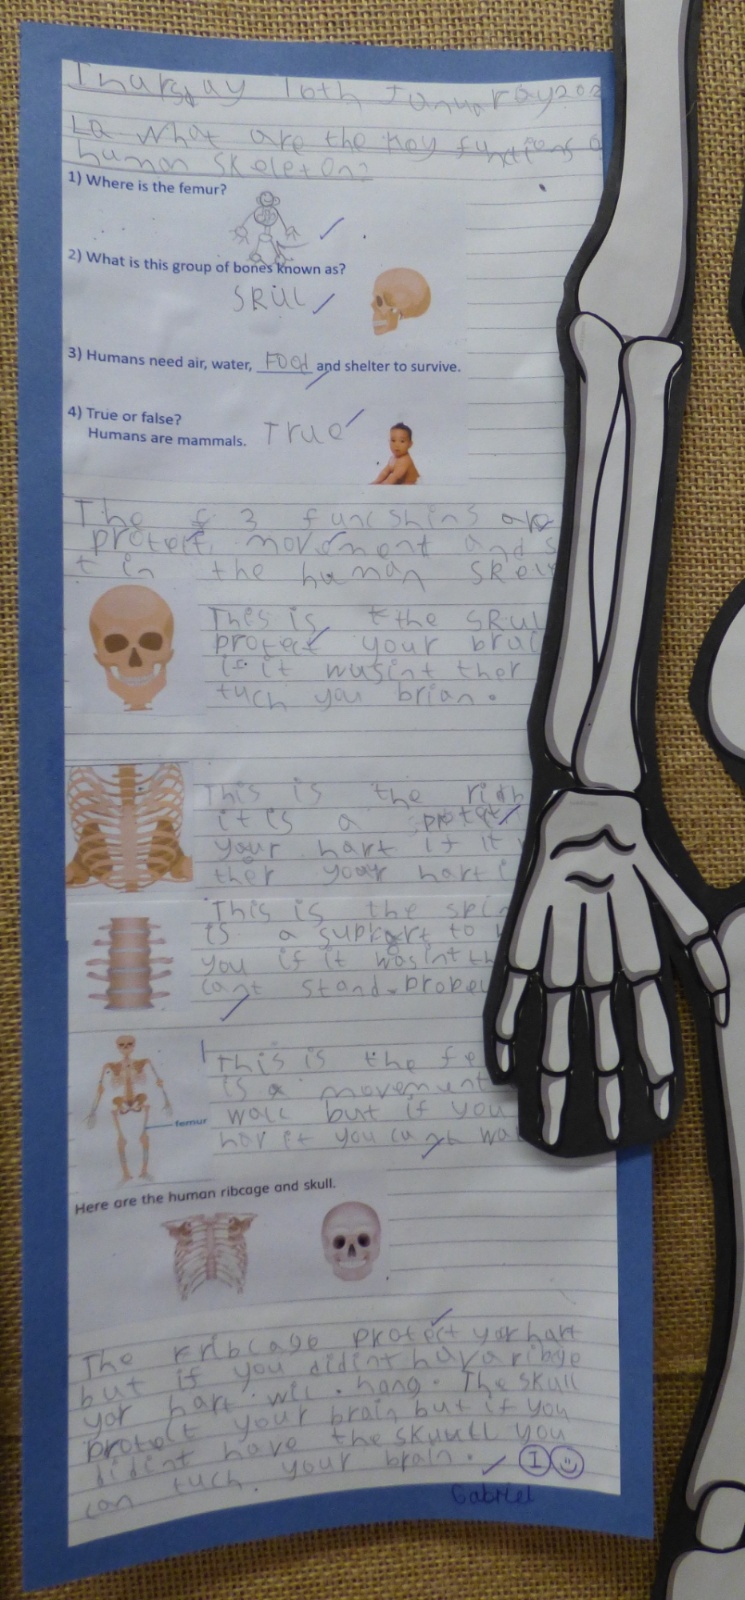 Thursday 16th Januaray 202
LQ What are the key functions o
human skeleton?
1) Where is the femur?
2) What is this group of bones known as?
SRUL
3) Humans need air, water, Food and shelter to survive.
4) True or false?
Humans are mammals. True
The 3 funcshins are
protect, movement and s
t in the human skel
This is the SRUL
protect your brai
if it wusint ther
tuch you brian.
This is the
it is a protect
your hart if it
ther your hart i
This is the spin
is a support to
you if it wasint th
cant stand properl
This is the fe
is a movement
wall but if you
it you cant wa
femur
Here are the human ribcage and skull.
The ribcage protect yor hart
but if you didint hava ribge
yor hart wil hang. The skull
protect your brain but if you
didint have the skuull you
can tuch your brain. I
Gabriel